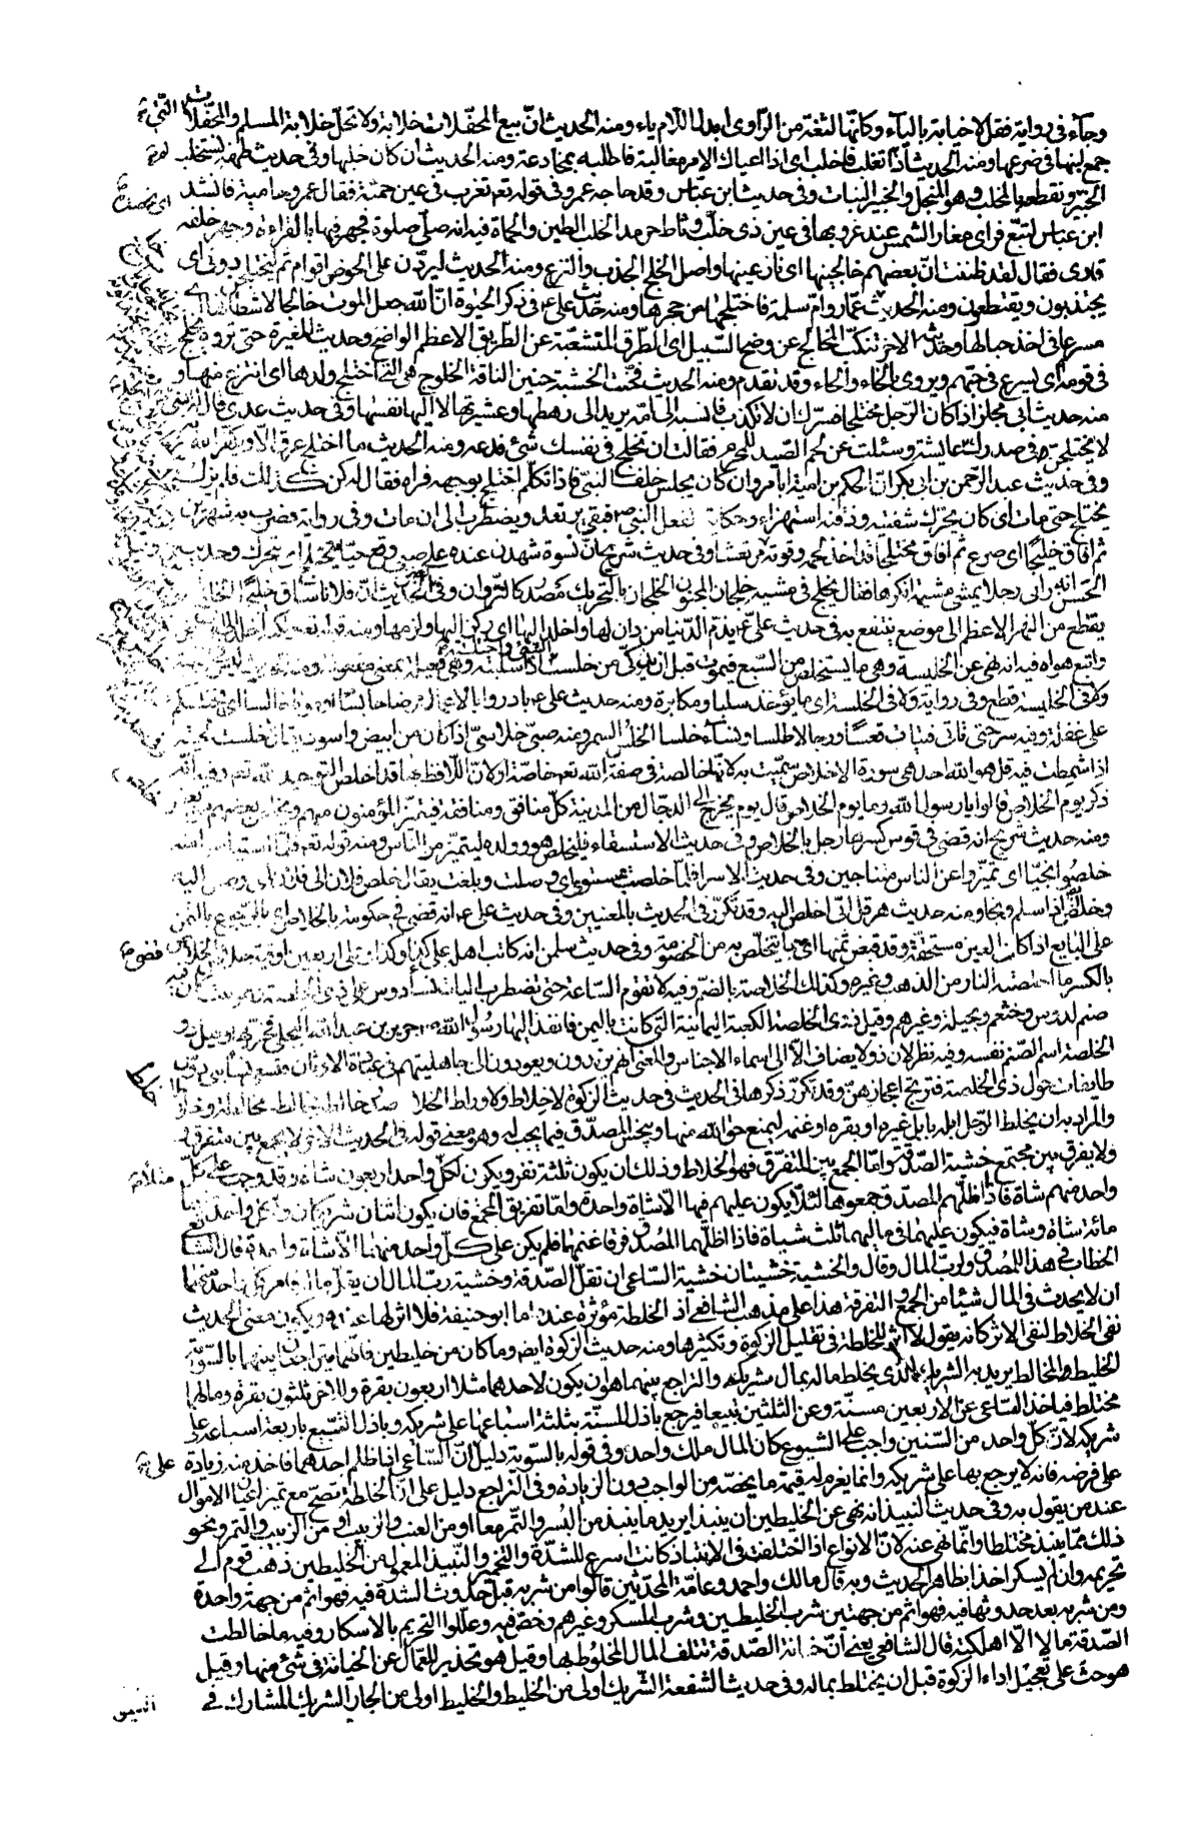 وجاء فى رواية فقل لا خيابة بالياء وكانها لثغة من الراوى ابدل اللام ياء ومنه الحديث ان بيع المحفلات خلابة ولا تحل خلابة المسلم والمحفلات التى
جمع لبنها فى ضرعها ومنه الحديث اذا لم تغلب فاخلب اى اذا اعياك الامر مغالبة فاطلبه مخادعة ومنه الحديث ان كان خلبها وفى حديث طهفة نستخلب
الخبير ونقطعه بالمخلب وهو المنجل والخبير النبات وفى حديث ابن عباس وقد حاجه عمرو فى قوله تعم تغرب فى عين حمئة فقال عمرو حامية فانشد
ابن عباس لتبع فراى مغار الشمس عند غروبها فى عين ذى خلب وثاط حرمد الخلب الطين والحماة فيه انه صلى صلوة فجهر فيها بالقراءة وجهر خلفه
قارى فقال لقد ظننت ان بعضهم خالجنيها اى نازعنيها واصل الخلج الجذب والنزع ومنه الحديث ليردن على الحوض اقوام ثم ليختلجن دونى اى
يجتذبون ويقتطعون ومنه الحديث عمار وام سلمة فاختلجها من حجرها ومنه حديث على ع فى ذكر الحيوة ان الله جعل الموت خالجا لاشطانها اى
مسرعا فى اخذ حبالها وحديثه الاخر تنكب المخالج عن وضح السبيل اى الطرق المتشعبة عن الطريق الاعظم الواضح وحديث المغيرة حتى تروه يخلج
فى قومه اى يسرع فى حبهم ويروى بالخاء والحاء وقد تقدم ومنه الحديث فحنت الخشبة حنين الناقة الخلوج هى التى اختلج ولدها اى انتزع منها و
منه حديث ابى مجلز اذا كان الرجل مختلجا فسرك ان لا تكذب فانسبه الى امه يريد الى رهطها وعشيرتها لا اليها نفسها وفى حديث عدى قال له النبى
لا يختلجن فى صدرك وحديث عايشة وسئلت عن لحم الصيد للمحرم فقالت ان تخلج فى نفسك شئ فدعه ومنه الحديث ما اختلج عرق الا ويكفر الله به
وفى حديث عبد الرحمن بن ابى بكر ان الحكم بن ابى العاص ابا مروان كان يجلس خلف النبى فاذا تكلم اختلج بوجهه فراه فقال له كن كذلك فلم يزل
يختلج حتى مات اى كان يحرك شفتيه وذقنه استهزاء وحكاية لفعل النبى ص فبقى يرتعد ويضطرب الى ان مات وفى رواية فضرب به شهرين
ثم افاق خليجا اى صرع ثم افاق مختلجا قد اخذ لحمه وقوته مرتعشا وفى حديث شريح ان نسوة شهدن عنده على صبى وقع حيا يتخلج اى يتحرك وحديث
الحسن انه راى رجلا يمشى مشية انكرها فقال يخلج فى مشيه خلجان المجنون الخلجان بالتحريك مصدر كالنزوان وفى الحديث ان فلانا ساق خليجا الخليج نهر
يقطع من النهر الاعظم الى موضع ينتفع به فيه وفى حديث على ع يذم الدنيا من دان لها واخلد اليها اى ركن اليها ولزمها ومنه قوله تعم
واتبع هواه فيه انه نهى عن الخليسة وهى ما يستخلص من السبع فيموت قبل ان يذكى من خلست الشئ واختلسته اذا سلبته وهى فعيلة بمعنى مفعولة ومنه الحديث ليس فى
ولا فى الخليسة قطع وفى رواية ولا فى الخلسة اى ما يؤخذ سلبا ومكابرة ومنه حديث على ع بادروا بالاعمال مرضا حابسا او موتا خالسا اى يختلسكم
على غفلة وفيه سر حتى تاتى فتيات قعسا ورجالا طلسا ونساء خلسا الخلس السمر ومنه صبى خلاسى اذا كان من ابيض واسود يقال خلست لحيته
اذا شمطت فيه قل هو الله احد هى سورة الاخلاص سميت به لانها خالصة فى صفة الله تعم خاصة او لان اللافظ بها قد اخلص التوحيد لله تعم وفيه انه
ذكر يوم الخلاص قالوا يا رسول الله وما يوم الخلاص قال يوم يخرج الى الدجال من المدينة كل منافق ومنافقة فيتميز المؤمنون منهم ويخلص بعضهم من بعض
ومنه حديث شريح انه قضى فى قوس كسرها رجل بالخلاص وفى حديث الاستسقاء فليخلص هو وولده ليتميز من الناس ومنه قوله تعم فلما استياسوا منه
خلصوا نجيا اى تميزوا عن الناس متناجين وفى حديث الاسرا فلما خلصت بمستوى اى وصلت وبلغت يقال خلص فلان الى فلان اى وصل اليه
وخلص ايضا اذا سلم ونجا ومنه حديث هرقل انى اخلص اليه وقد تكرر فى الحديث بالمعنيين وفى حديث على ع انه قضى فى حكومة بالخلاص اى بالرجوع بالثمن
على البايع اذا كانت العين مستحقة وقد قبض ثمنها اى قضى بما يتخلص به من الخصومة وفى حديث سلمن انه كاتب اهله على كذا وكذا وعلى اربعين اوقية خلاص الخلاص
بالكسر ما اخلصته النار من الذهب وغيره وكذلك الخلاصة بالضم وفيه لا تقوم الساعة حتى تضطرب اليات نساء دوس على ذى الخلصة هو بيت كان فيه
صنم لدوس وخثعم وبجيلة وغيرهم وقيل ذو الخلصة الكعبة اليمانية التى كانت باليمن فانفذ اليها رسول الله ص جرير بن عبد الله البجلى فخربها وقيل ذو
الخلصة اسم الصنم نفسه وفيه نظر لان ذو لا يضاف الا الى اسماء الاجناس والمعنى انهم يرتدون ويعودون الى جاهليتهم فى عبادة الاوثان فتسعى نساء بنى دوس
طايفات حول ذى الخلصة فترتج اعجازهن وقد تكرر ذكرها فى الحديث فى حديث الزكوة لا خلاط ولا وراط الخلاط مصدر خالطه يخالطه مخالطة وخلاطا
والمراد به ان يخلط الرجل ابله بابل غيره او بقره او غنمه ليمنع حق الله منها ويبخس المصدق فيما يجب له وهو معنى قوله فى الحديث الاخر لا يجمع بين متفرق
ولا يفرق بين مجتمع خشية الصدقة واما الجمع بين المتفرق فهو الخلاط وذلك ان يكون ثلثة نفر ويكون لكل واحد اربعون شاة وقد وجب على كل
واحد منهم شاة فاذا اظلهم المصدق جمعوها لئلا يكون عليهم فيها الا شاة واحدة واما تفريق المجتمع فان يكون اثنان شريكان ولكل واحد منهما
مائة شاة وشاة فيكون عليهما فى ماليهما ثلث شياة فاذا اظلهما المصدق فرقا غنمهما فلم يكن على كل واحد منهما الا شاة واحدة قال الشافعى
الخطاب فى هذا للمصدق ولرب المال وقال والخشية خشيتان خشية الساعى ان تقل الصدقة وخشية رب المال ان يقل ماله فامر كل واحد منهما
ان لا يحدث فى المال شيئا من الجمع والتفرقة هذا على مذهب الشافعى اذ الخلطة مؤثرة عنده اما ابو حنيفة فلا اثر لها عنده ويكون معنى الحديث
نفى الخلاط لنفى الاثر كانه يقول لا اثر للخلطة فى تقليل الزكوة وتكثيرها ومنه حديث الزكوة ايضا وما كان من خليطين فانهما يتراجعان بينهما بالسوية
الخليط والمخالط يريد به الشريك الذى يخلط ماله بمال شريكه والتراجع بينهما هو ان يكون لاحدهما مثلا اربعون بقرة وللاخر ثلثون بقرة ومالهما
مختلط فياخذ الساعى عن الاربعين مسنة وعن الثلثين تبيعا فيرجع باذل المسنة بثلثة اسباعها على شريكه وباذل التبيع باربعة اسباعه على
شريكه لان كل واحد من السنين واجب على الشيوع كان المال ملك واحد وفى قوله بالسوية دليل ان الساعى اذا ظلم احدهما فاخذ منه زيادة
على فرضه فانه لا يرجع بها على شريكه وانما يغرم له قيمة ما يخصه من الواجب دون الزيادة وفى التراجع دليل على ان الخلطة تصح مع تميز اعيان الاموال
عند من يقول به وفى حديث النبيذ انه نهى عن الخليطين ان ينبذا يريد ما ينبذ من البسر والتمر معا او من العنب والزبيب او من الزبيب والتمر ونحو
ذلك مما ينبذ مختلطا وانما نهى عنه لان الانواع اذا اختلفت فى الانتباذ كانت اسرع للشدة والتخمير والنبيذ المعمول من الخليطين ذهب قوم الى
تحريمه وان لم يسكر اخذا بظاهر الحديث وبه قال مالك واحمد وعامة المحدثين قالوا من شربه قبل حدوث الشدة فيه فهو اثم من جهة واحدة
ومن شربه بعد حدوثها فيه فهو اثم من جهتين شرب الخليطين وشرب المسكر وغيرهم رخص فيه وعللوا التحريم بالاسكار وفيه ما خالطت
الصدقة مالا الا اهلكته قال الشافعى يعنى ان خيانة الصدقة تتلف المال المخلوط بها وقيل هو تحذير للعمال عن الخيانة فى شئ منها وقيل
هو حث على تعجيل اداء الزكوة قبل ان يختلط بماله وفى حديث الشفعة الشريك اولى من الخليط والخليط اولى من الجار الشريك المشارك فى